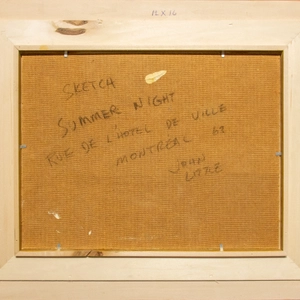 12 X 16
SKETCH
SUMMER NIGHT
RUE DE L'HOTEL DE VILLE
MONTREAL 62
JOHN
LITTLE